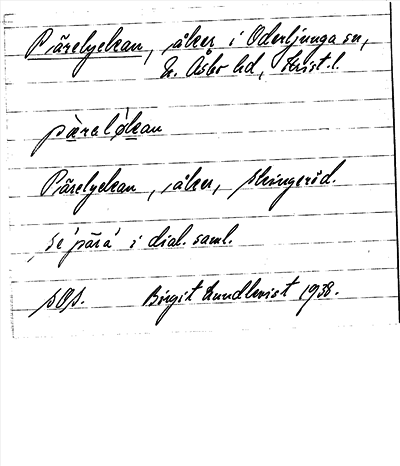 Pärelyckan, åker i Oderljunga sn,
N. Åsbo hd, Krist. l.
pärelökan
Pärelyckan, åker, Skingeröd.
se 'pärä' i dial. saml.
SOS. Birgit Lundkvist 1938.